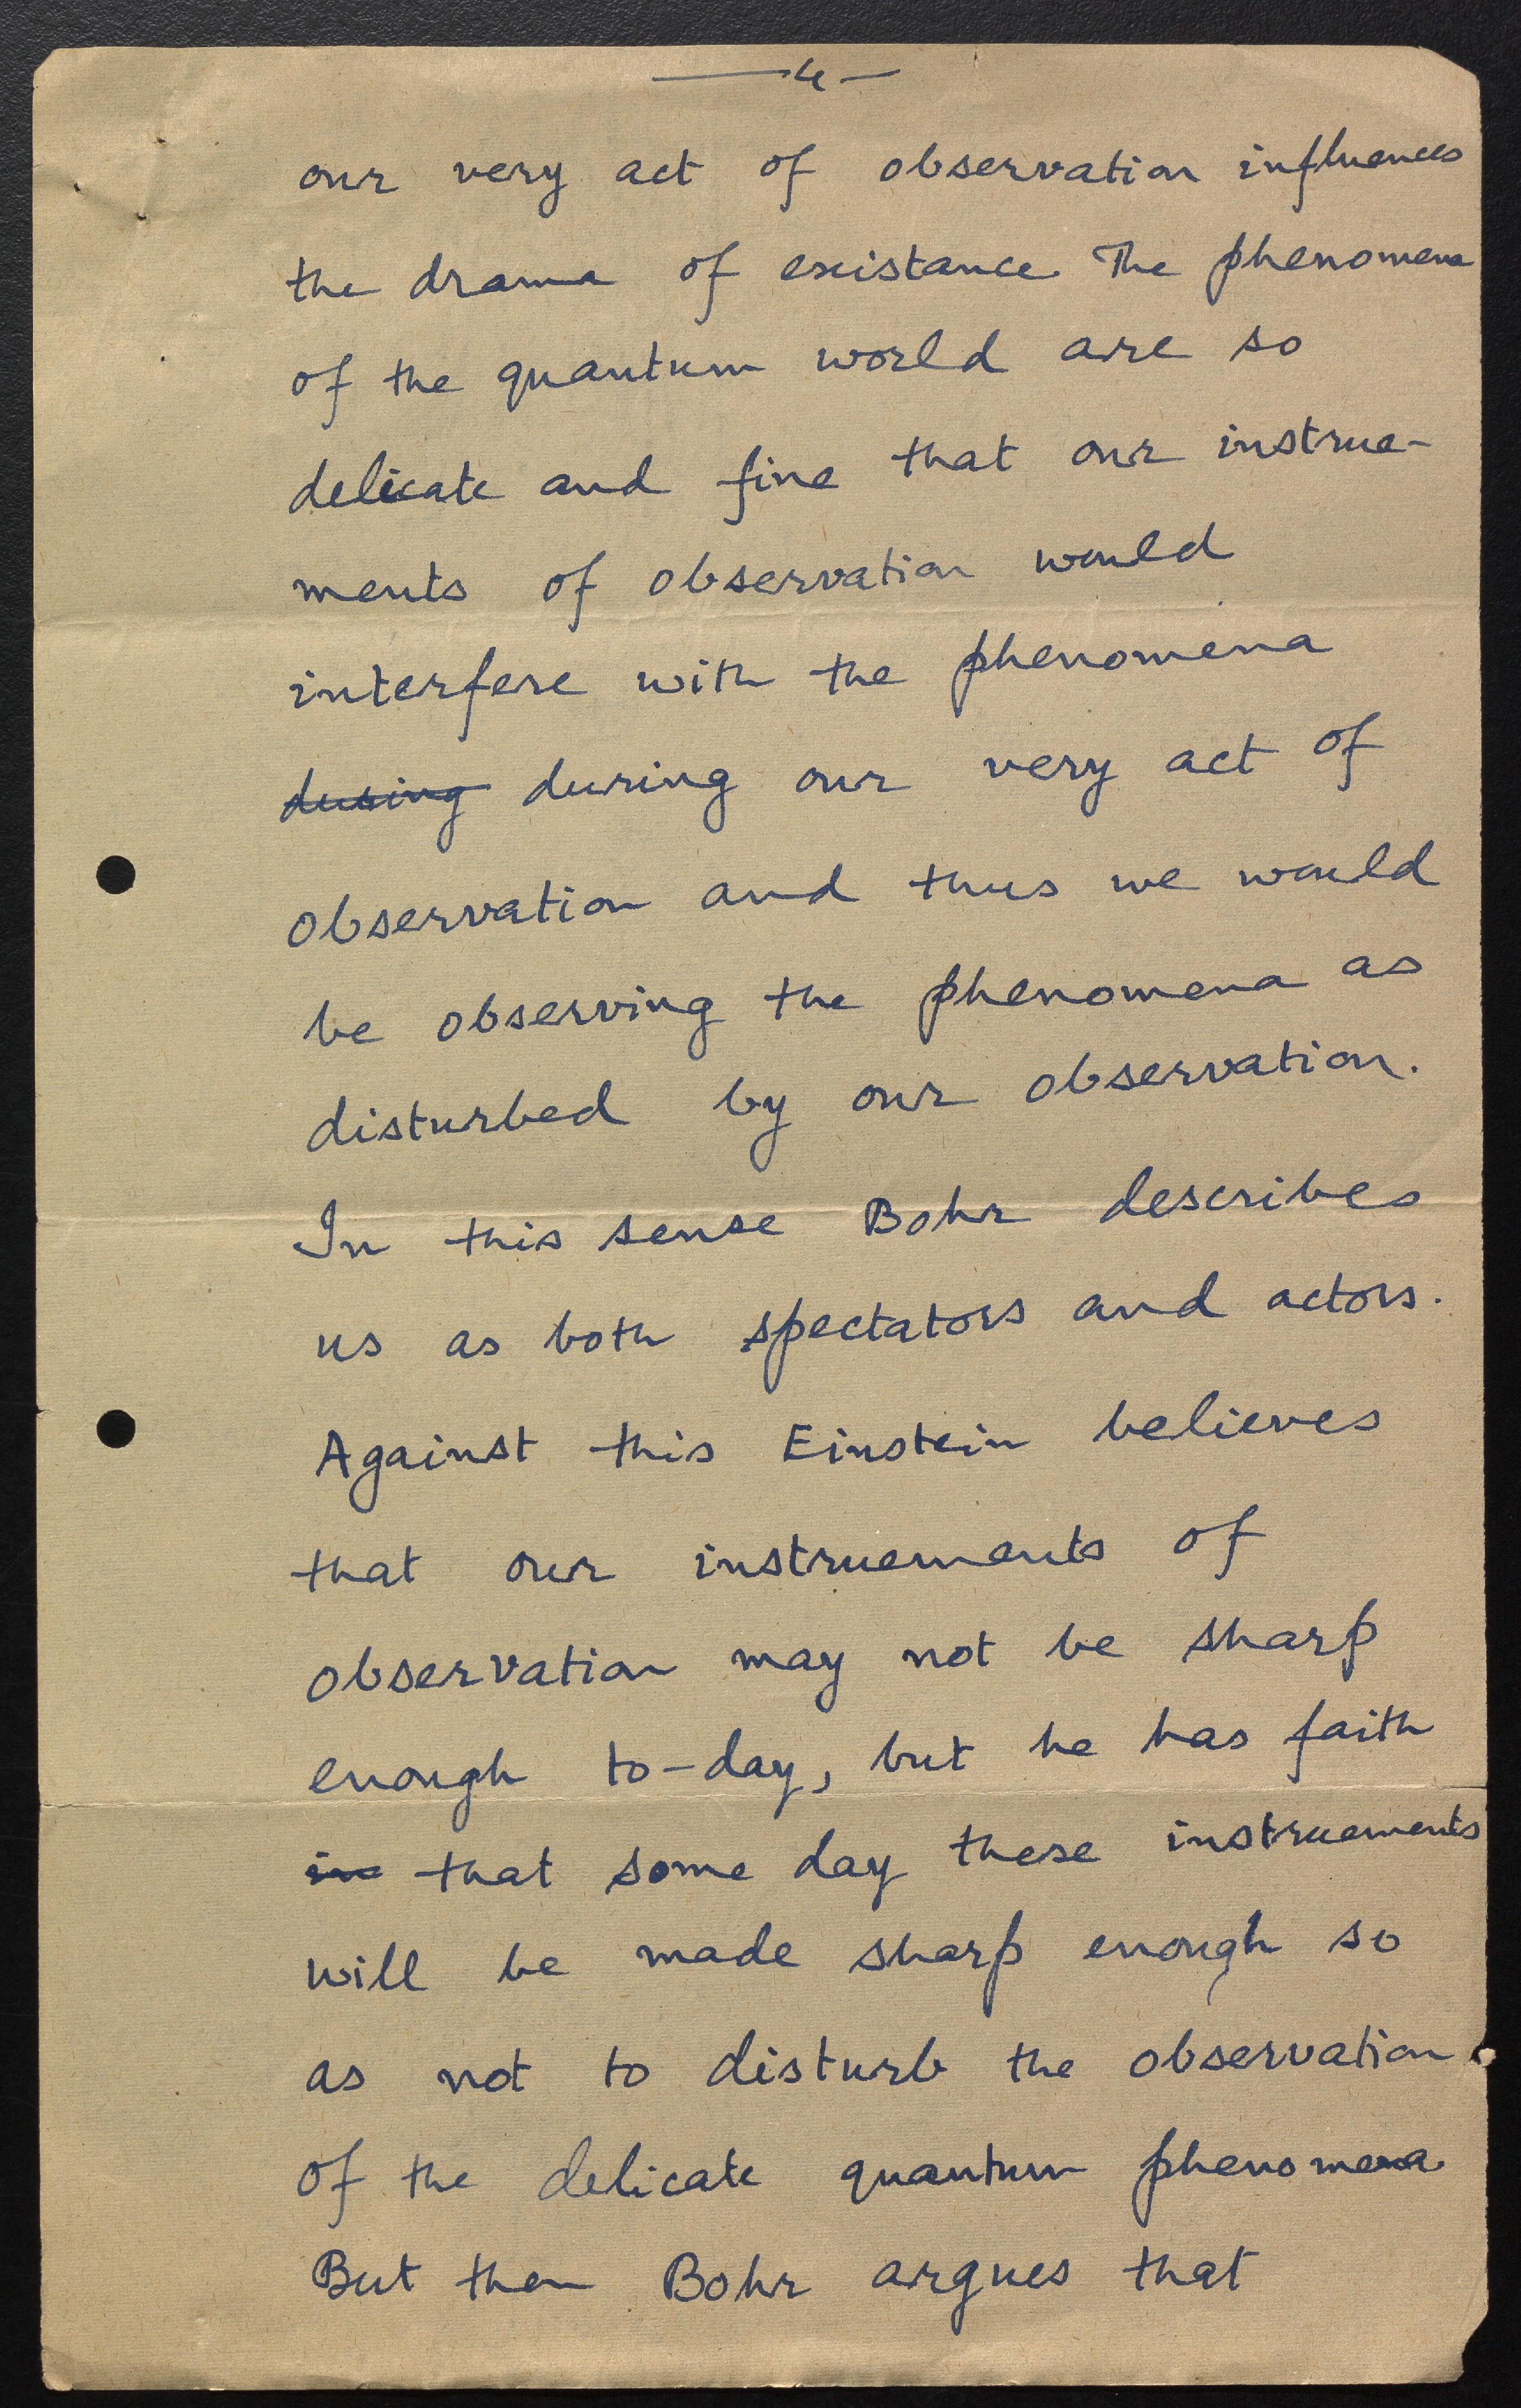 — 4 —
our very act of observation influences
the drama of existance. The phenomena
of the quantum world are so
delicate and fine that our instrue-
ments of observation would
interfere with the phenomena
during during our very act of
observation and thus we would
be observing the phenomena as
disturbed by our observation.
In this sense Bohr describes
us as both spectators and actors.
Against this Einstein believes
that our instruements of
observation may not be sharp
enough to-day, but he has faith
in that some day these instruements
will be made sharp enough so
as not to disturb the observation
of the delicate quantum phenomena.
But then Bohr argues that